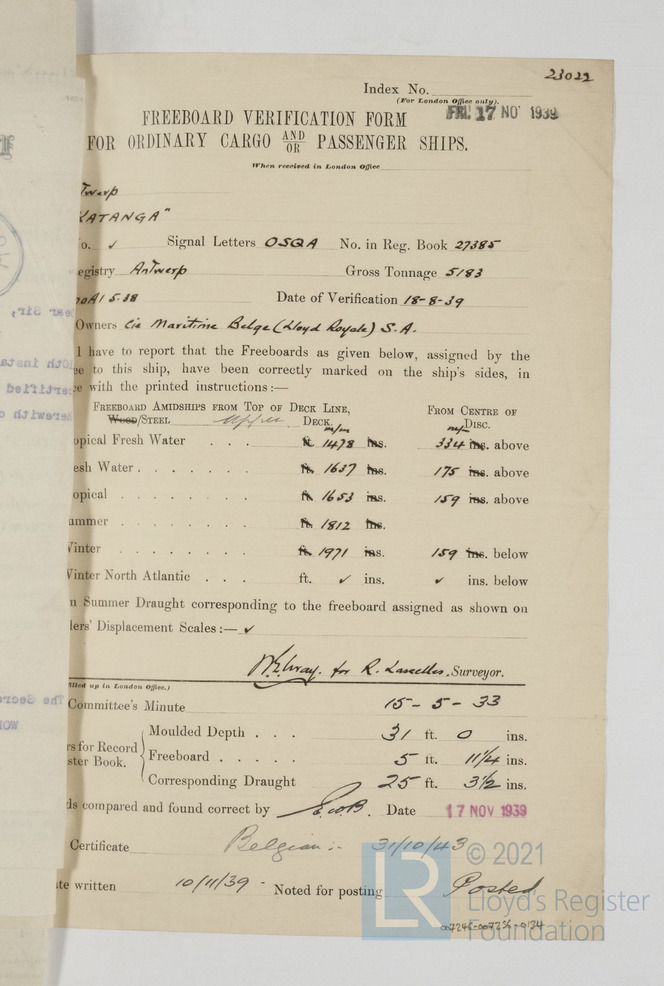 23022
Index No.
(For London Office only).
FRI. 17 NOV 1939
FREEBOARD VERIFICATION FORM
FOR ORDINARY CARGO AND/OR PASSENGER SHIPS.
When received in London Office
twerp
KATANGA"
o. ✓ Signal Letters OSQA No. in Reg. Book 27385
egistry Antwerp Gross Tonnage 5183
00A1 5.38 Date of Verification 18-8-39
Owners Cie Maritime Belge (Lloyd Royale) S.A.
I have to report that the Freeboards as given below, assigned by the
ee to this ship, have been correctly marked on the ship's sides, in
ce with the printed instructions:—
FREEBOARD AMIDSHIPS FROM TOP OF DECK LINE, FROM CENTRE OF
WOOD/STEEL Upper DECK. DISC.
m/m m/m
opical Fresh Water . . . ft. 1478 ins. 334 ins. above
esh Water . . . . . . ft. 1637 ins. 175 ins. above
opical . . . . . . . ft. 1653 ins. 159 ins. above
ummer . . . . . . . ft. 1812 ins.
Winter . . . . . . . ft. 1971 ins. 159 ins. below
Winter North Atlantic . . . ft. ✓ ins. ✓ ins. below
n Summer Draught corresponding to the freeboard assigned as shown on
lers' Displacement Scales :— ✓
for R. Lascelles. Surveyor.
filled up in London Office.)
Committee's Minute 15-5-33
rs for Record
ster Book.
Moulded Depth . . . 31 ft. 0 ins.
Freeboard . . . . . 5 ft. 11 1/4 ins.
Corresponding Draught 25 ft. 3 1/2 ins.
ds compared and found correct by Date 17 NOV 1939
Certificate Belgian :- 31/10/43
te written 10/11/39 - Noted for posting Posted
007246-007256-0134
LR
© 2021
Lloyd's Register
Foundation
ear Sir,
0th insta
ertified
herewith c
The Secre
WOR